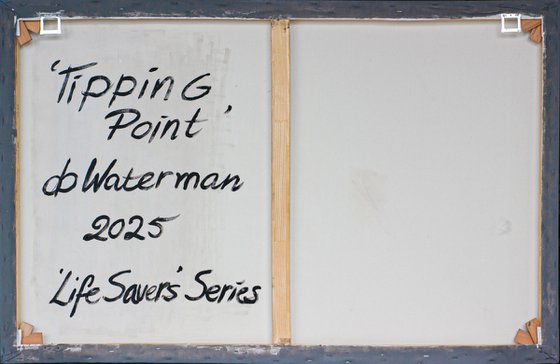 'Tipping
Point'
db Waterman
2025
'Life Savers' Series